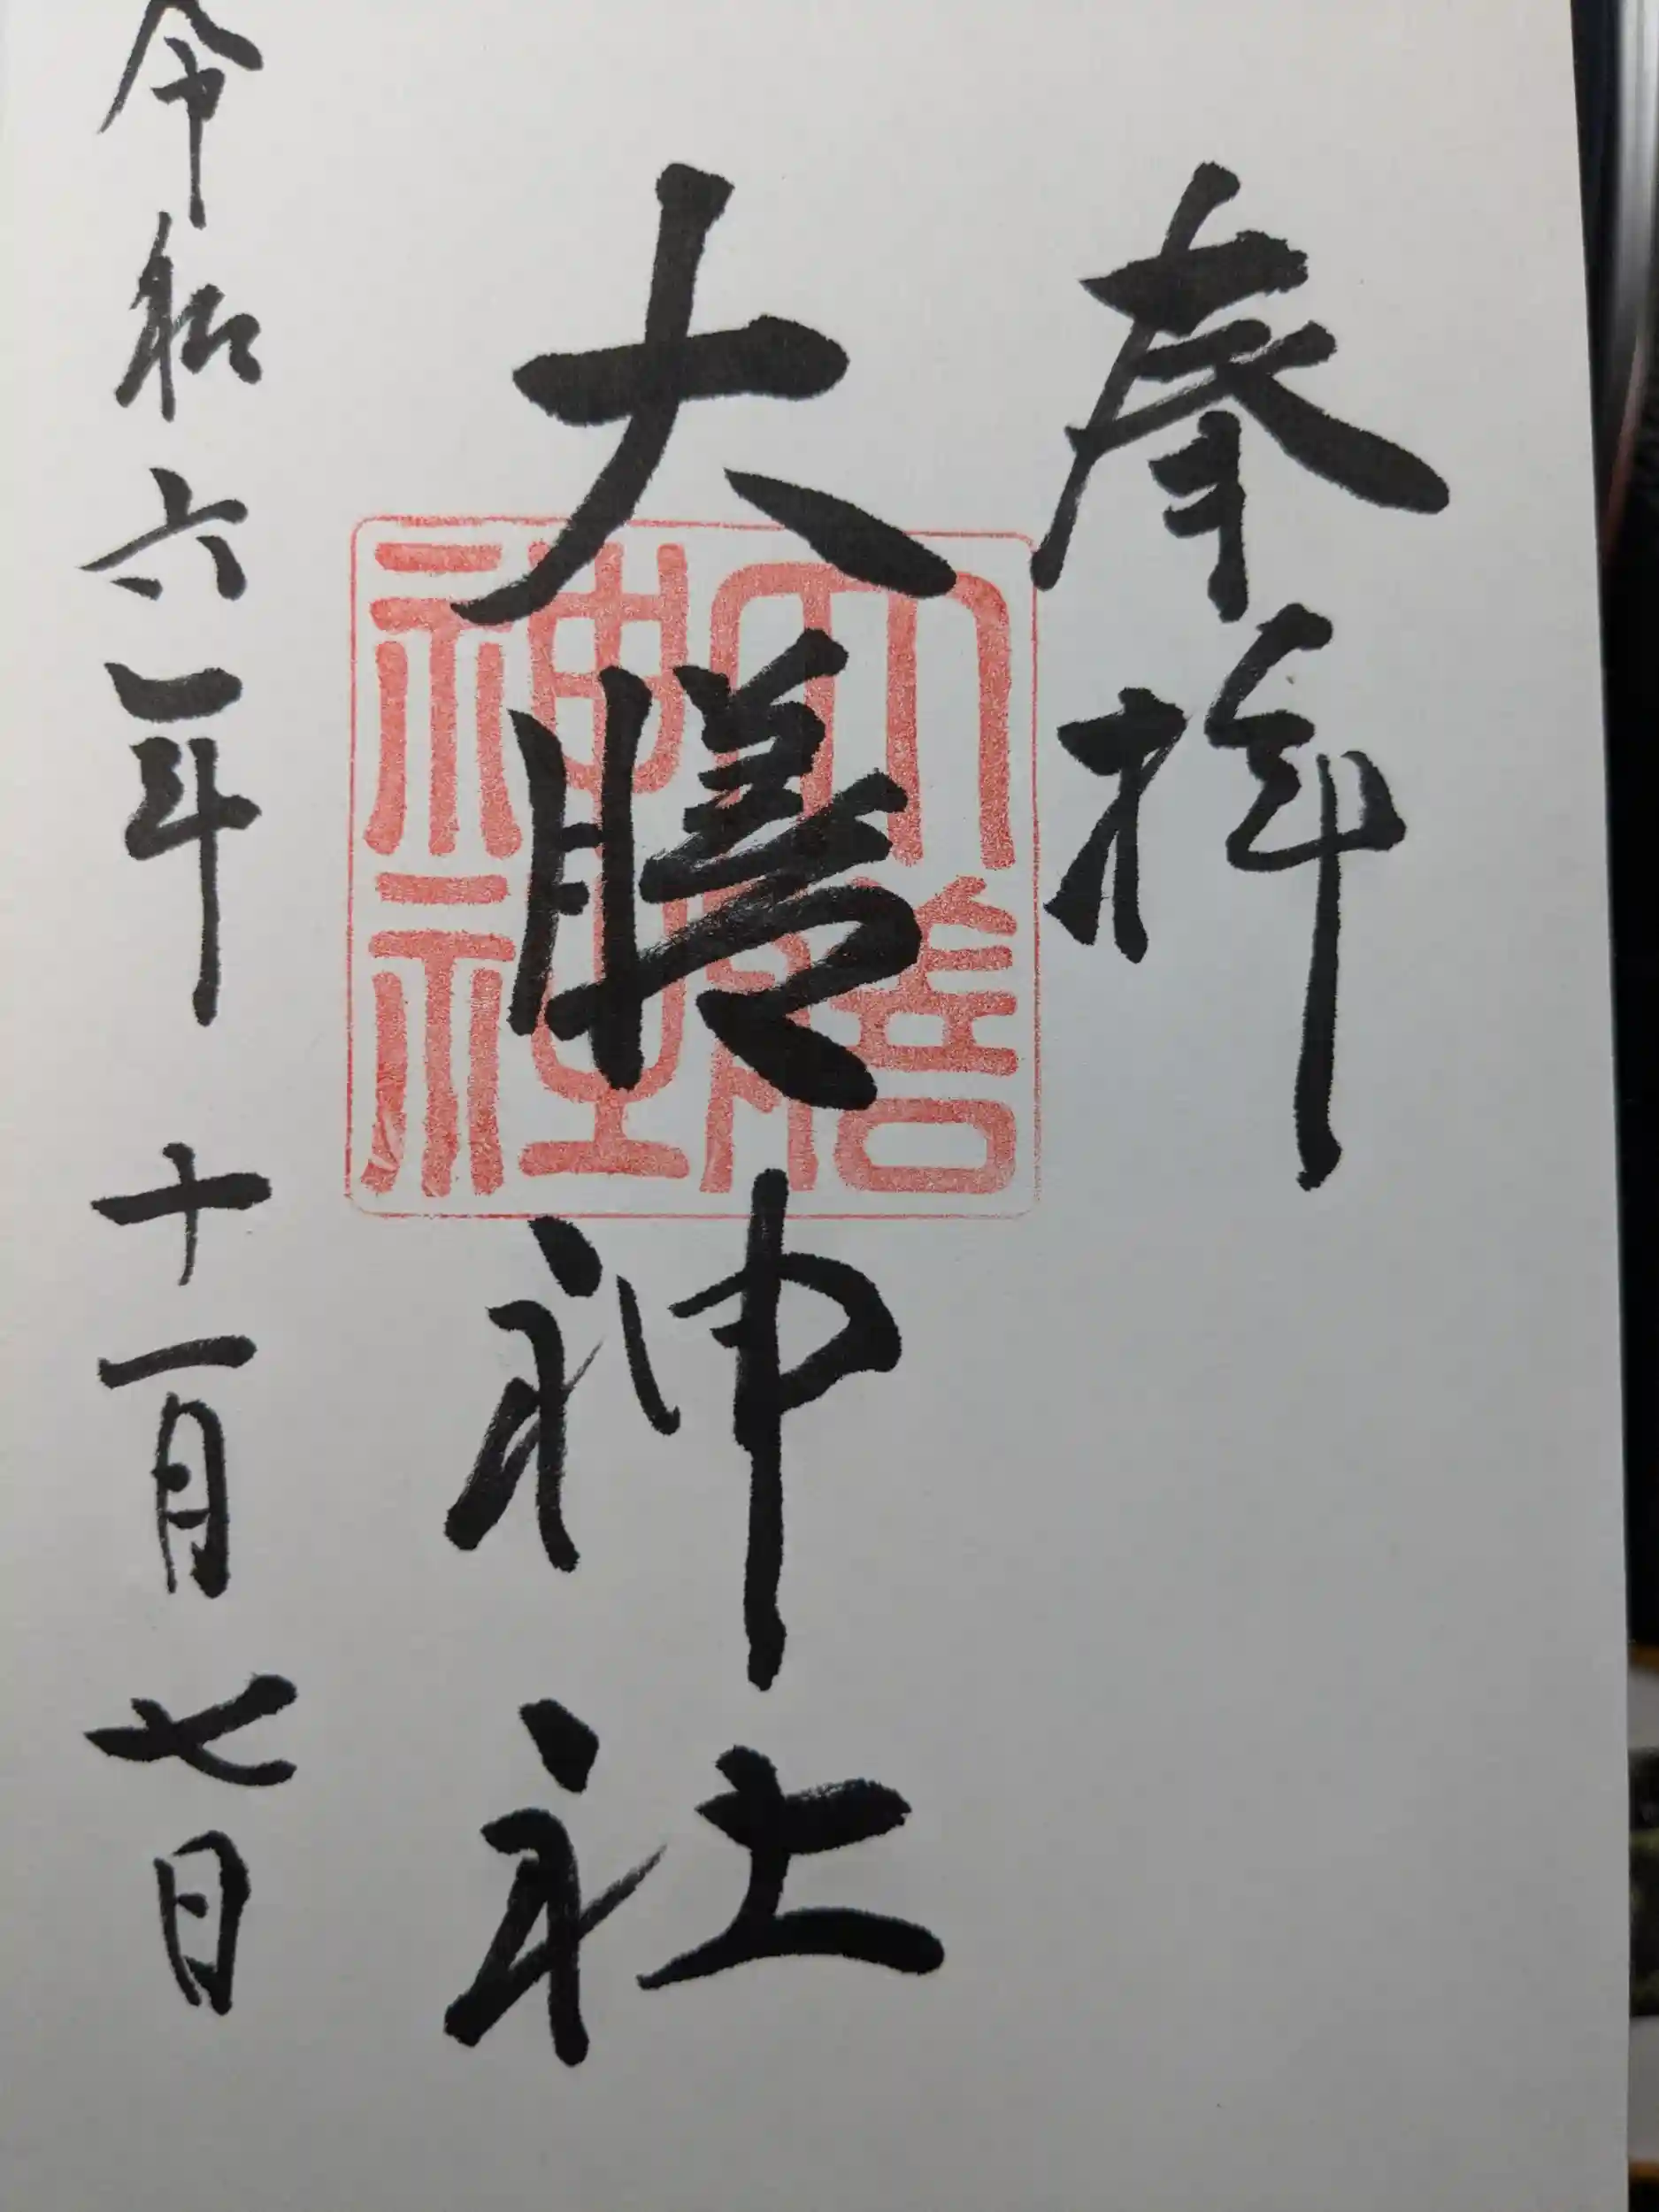 奉拝
大膳神社
大膳
神社
令和六年十一月七日